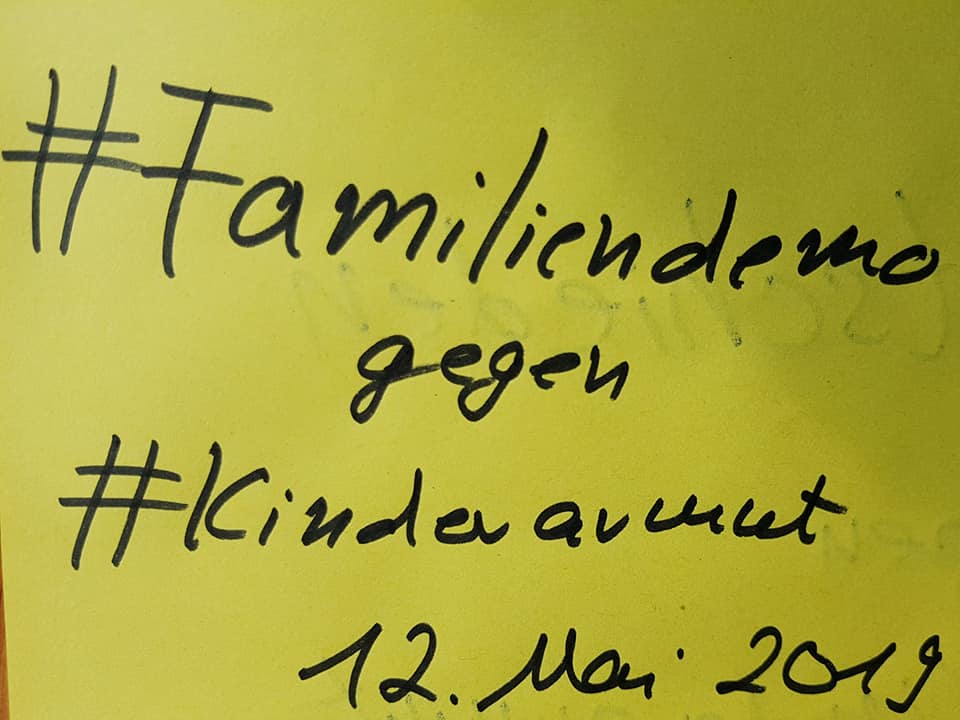 #Familiendemo
gegen
#Kinderarmut
12. Mai 2019